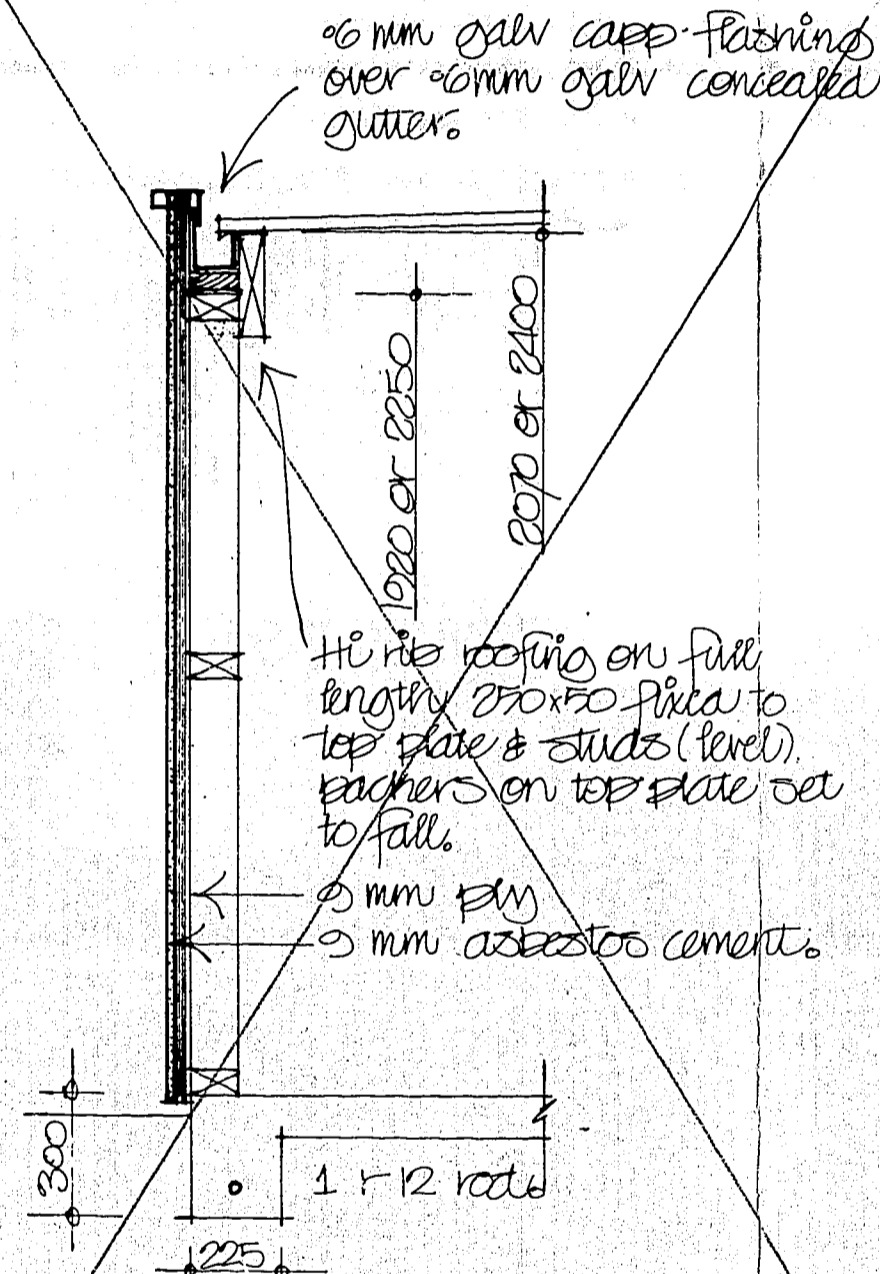 ·6 mm galv capp. flashing
over ·6mm galv concealed
gutter.
1920 or 2250
2070 or 2400
Hi rib roofing on full
length 250x50 fixed to
top plate & studs (level).
packers on top plate set
to fall.
9 mm ply
9 mm asbestos cement.
300
1 r12 rod
225